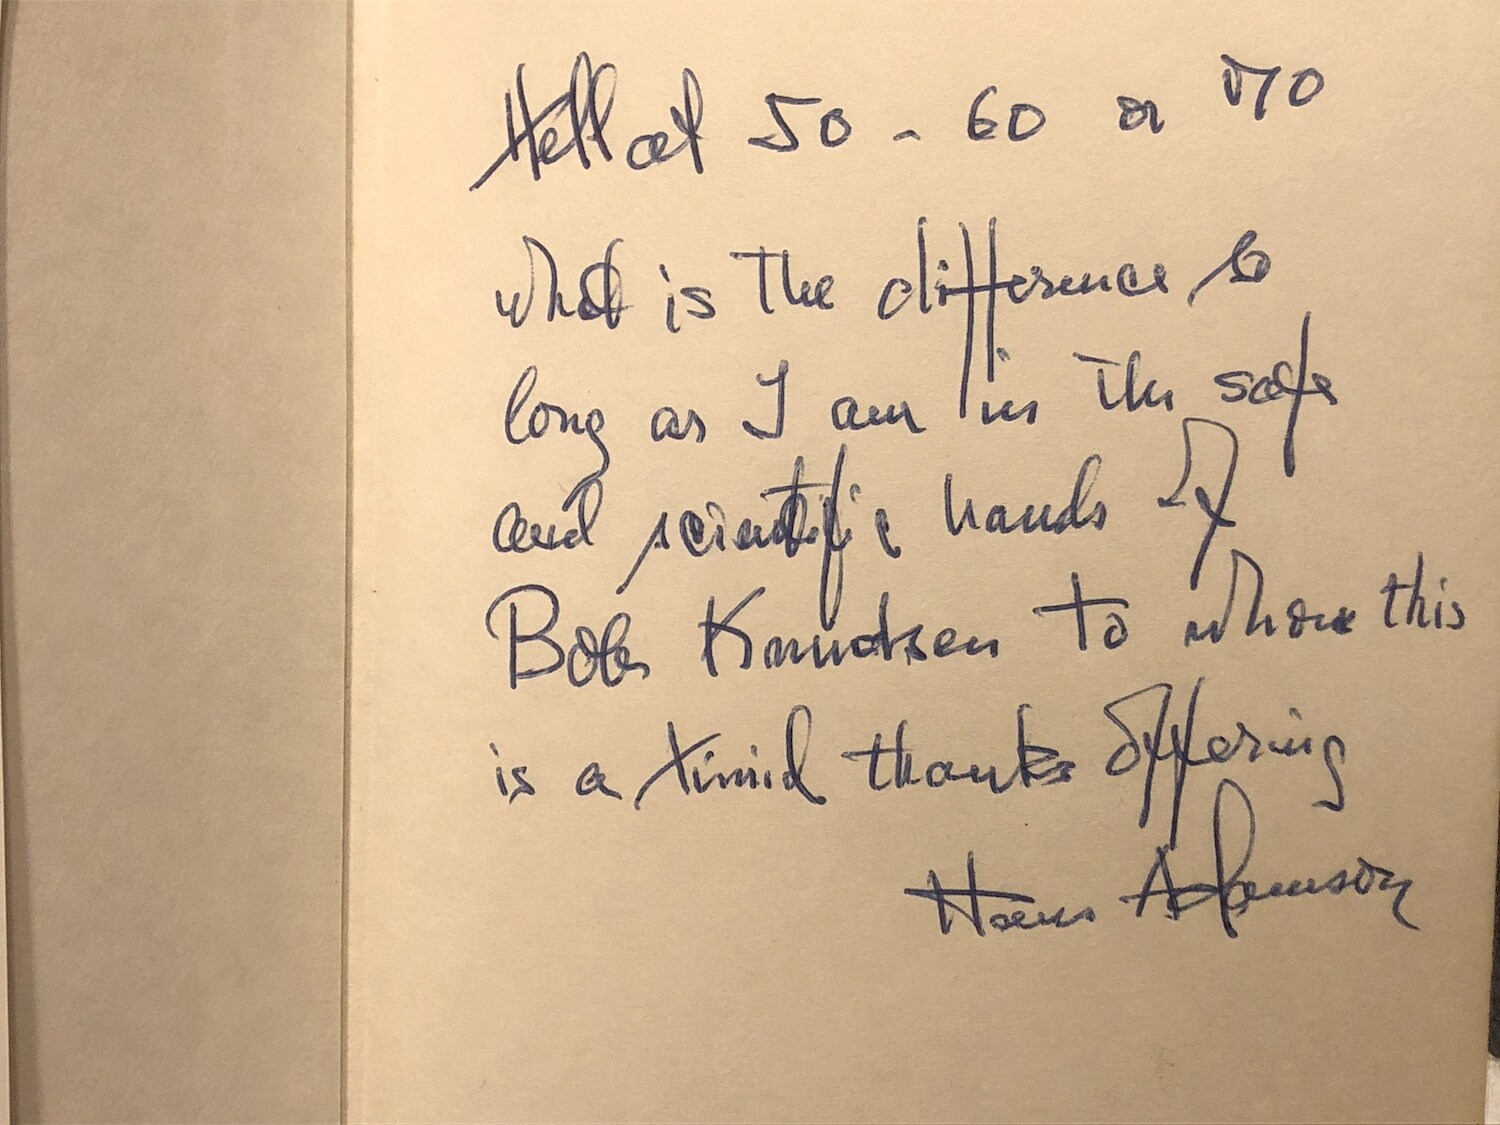 Hell at 50 - 60 or 70
what is the difference so
long as I am in the safe
and scientific hands of
Bob Knudsen to whom this
is a timid thanks offering
Hans Adamson